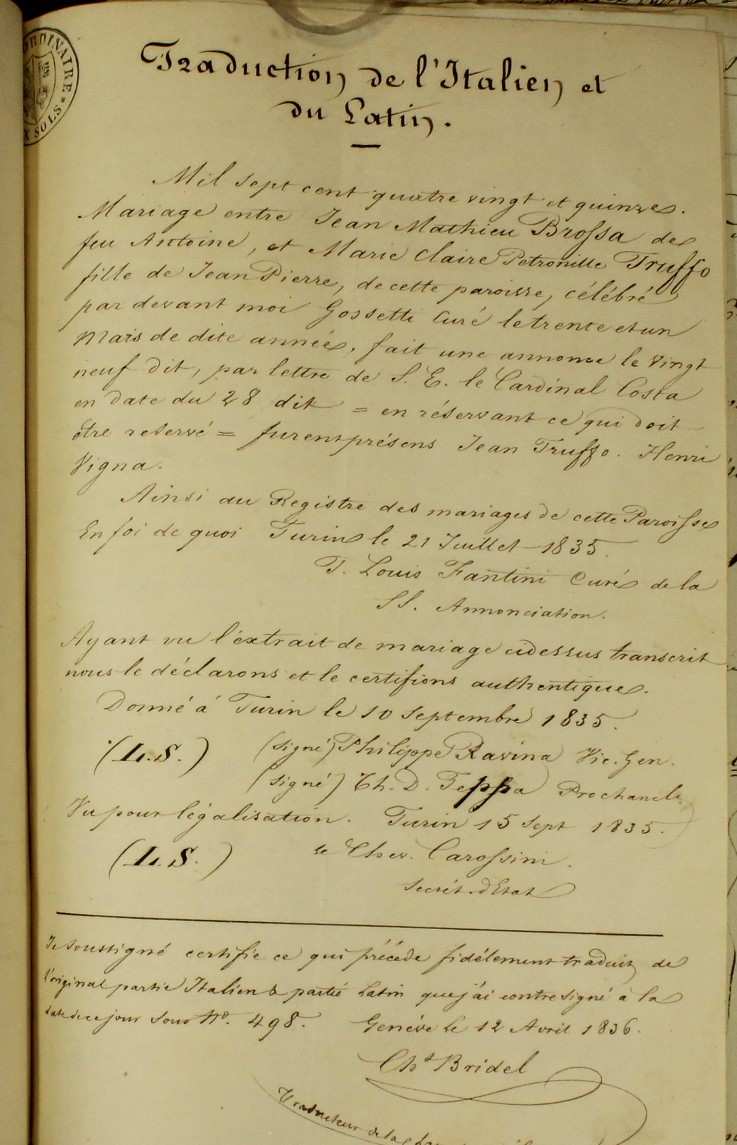 ORDINAIRE
SOLS
Traduction de l'Italien et
du Latin.
Mil sept cent quatre vingt et quinze.
Mariage entre Jean Mathieu Brossa de
feu Antoine, et Marie Claire Petronille Truffo
fille de Jean Pierre, de cette paroisse, célébré
par devant moi Gossetti Curé le trente et un
Mars de dite année, fait une annonce le vingt
neuf dit, par lettre de S. E. le Cardinal Costa
en date du 28 dit = en réservant ce qui doit
être reservé = furent présens Jean Truffo. Henri
Vigna.
Ainsi au Registre des mariages de cette Paroisse
En foi de quoi Turin le 21 Juillet 1835.
T. Louis Fantini Curé de la
SS. Annonciation.
Ayant vu l'extrait de mariage cidessus transcrit
nous le déclarons et le certifions authentique.
Donné à Turin le 10 Septembre 1835.
(L.S.) (signé) Philippe Ravina Vic. Gen.
(signé) Th. D. Teppa Prochancle
Vu pour légalisation. Turin 15 Sept 1835.
(L.S.) le Chev. Carossini.
Secrét. d'Etat
Je soussigné certifie ce qui précède fidèlement traduit de
l'original partie Italien & partie Latin que j'ai contresigné à la
date de ce jour sous No. 498. Genève le 12 Avril 1836.
Chs Bridel
Traducteur de la